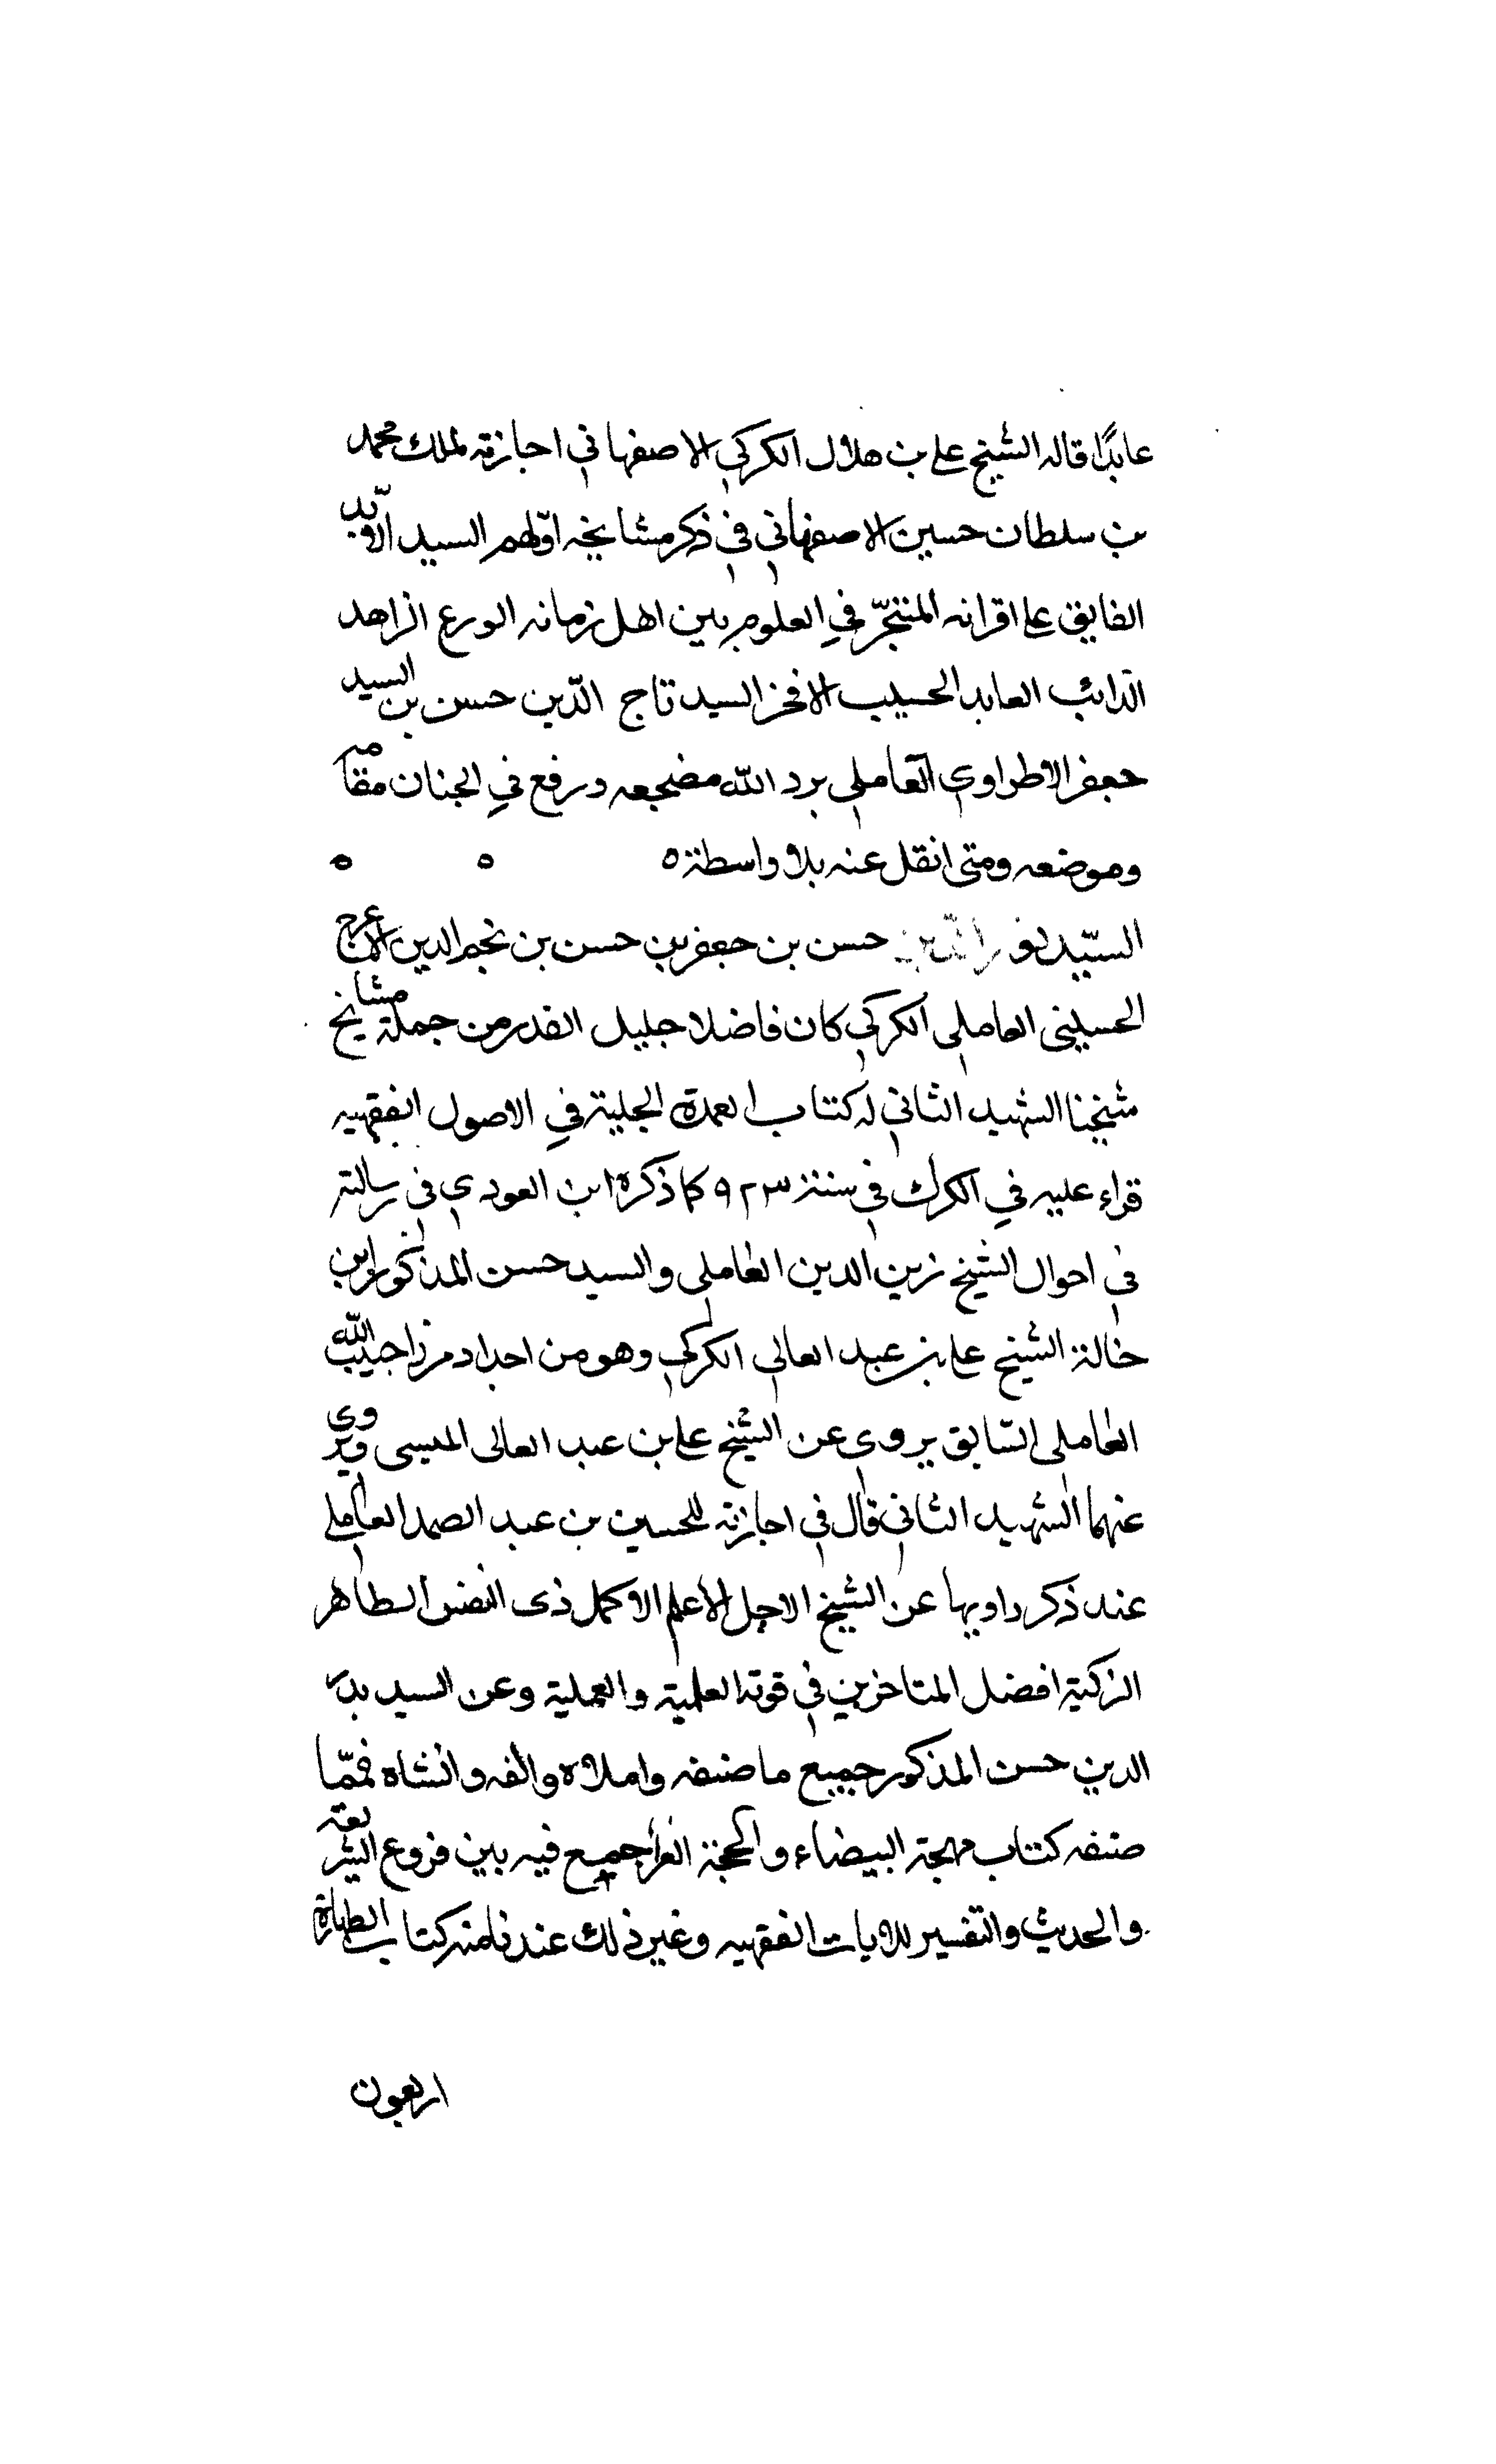 عابدًا قاله الشيخ على بن هلال الكركي الاصفهاني اجازته لملك محمد
بن سلطان حسين الاصفهاني في ذكر مشايخه اوّلهم السيد الاوّبد
الفايق على اقرانه المتبحّر في العلوم بين اهل زمانه الورع الزاهد
الدائب العابد الحسيب الافخر السيد تاج الدّين حسن بن السيد
جعفر الاطراوي العاملي برد اللّه مضجعه ورفع في الجنان مقامه
وموضعه ومتى انقل عنه بلا واسطة ٥ ٥ ٥
السيّد بدر الدّين حسن بن جعفر بن حسن بن نجم الدين الاعرج
الحسيني العاملي الكركي كان فاضلا جليل القدر من جملة مشايخ
شيخنا الشهيد الثاني له كتاب العمدة الجلية في الاصول الفقهيه
قراء عليه في الكرك في سنة ٩٢٣ كما ذكره ابن العودي في رسالته
في احوال الشيخ زين الدين العاملي والسيد حسن المذكور ابن
خالة الشيخ على بن عبد العالي الكركي وهو من اجداد مرزا حبيب اللّه
العاملي السّابق يروي عن الشيخ على بن عبد العالى الميسى ويروي
عنهما الشهيد الثاني قال في اجازته للحسين بن عبد الصمد العاملي
عند ذكر داويها عن الشيخ الاجل الاعلم الاكمل ذى النفس الطاهر
الزكية افضل المتاخرين في قوته العلمية والعملية وعن السيد بدر
الدين حسن المذكور جميع ما صنفه واملاه والفه وانشاه فممّا
صنفه كتاب مهجة البيضاء والحجة الغرأ جمع فيه بين فروع الشريعة
والحديث والتفسير للايات الفقهيه وغير ذلك عندنا منه كتاب الطهارة
اربعون